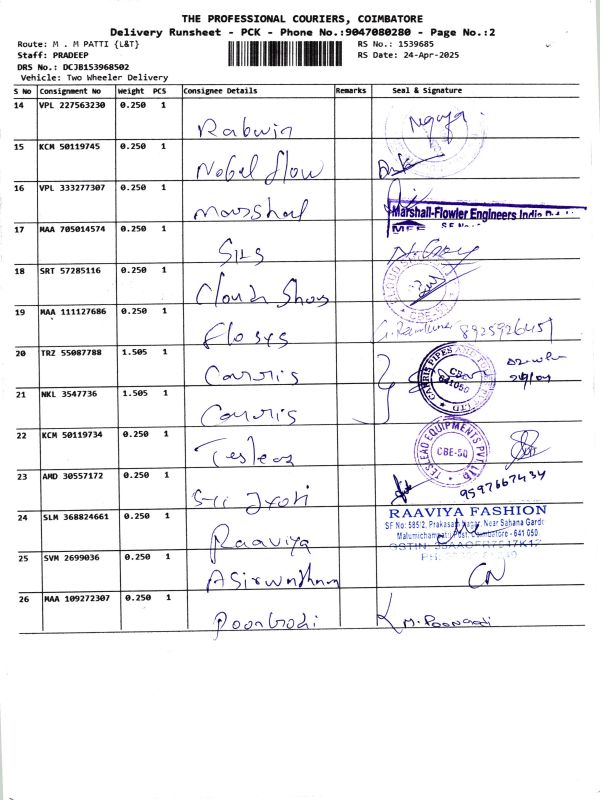 THE PROFESSIONAL COURIERS, COIMBATORE
Delivery Runsheet - PCK - Phone No.:9047080280 - Page No.:2
Route: M . M PATTI {L&T}
RS No.: 1539685
Staff: PRADEEP
RS Date: 24-Apr-2025
DRS No.: DCJB153968502
Vehicle: Two Wheeler Delivery
S No Consignment No Weight PCS Consignee Details Remarks Seal & Signature
14 VPL 227563230 0.250 1
Rabwin
15 KCM 50119745 0.250 1
Nobel flow
16 VPL 333277307 0.250 1
Marshal
Marshall-Flowler Engineers India
MFE
17 MAA 705014574 0.250 1
18 SRT 57285116 0.250 1
Cloud Shoes
CBE
19 MAA 111127686 0.250 1
Elosys
8925926451
20 TRZ 55087788 1.505 1
Carris
CARRIS PIPES AND
641050
21 NKL 3547736 1.505 1
Carris
22 KCM 50119734 0.250 1
Teslead
TESLEAD EQUIPMENTS PVT LTD
CBE-50
23 AMD 30557172 0.250 1
Sri Jyoti
9597667434
24 SLM 368824661 0.250 1
Raaviya
RAAVIYA FASHION
SF No: 585/2, Prakasam Nagar, Near Sahana Garde
Malumichampatti Post, Coimbatore - 641 050
25 SVM 2699036 0.250 1
Asirvatham
CN
26 MAA 109272307 0.250 1
Poonkodi